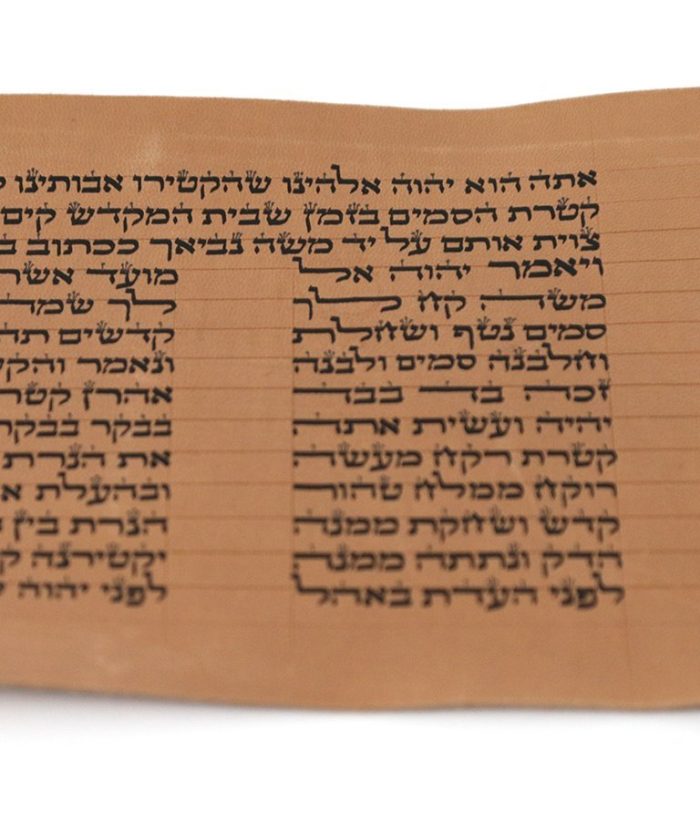 אתה הוא יהוה אלהינו שהקטירו אבותינו
קטרת הסמים בזמן שבית המקדש קים
צוית אותם על יד משה נביאך ככתוב
ויאמר יהוה אל
משה קח לך
סמים נטף ושחלת
וחלבנה סמים ולבנה
זכה בד בבד
יהיה ועשית אתה
קטרת רקח מעשה
רוקח ממלח טהור
קדש ושחקת ממנה
הדק ונתתה ממנה
לפני העדת באהל
מועד אשר
לך שמה
קדשים
ונאמר
אהרן
בבקר בבקר
את הנרת
ובהעלת
הנרת בין
יקטירנה
לפני יהוה